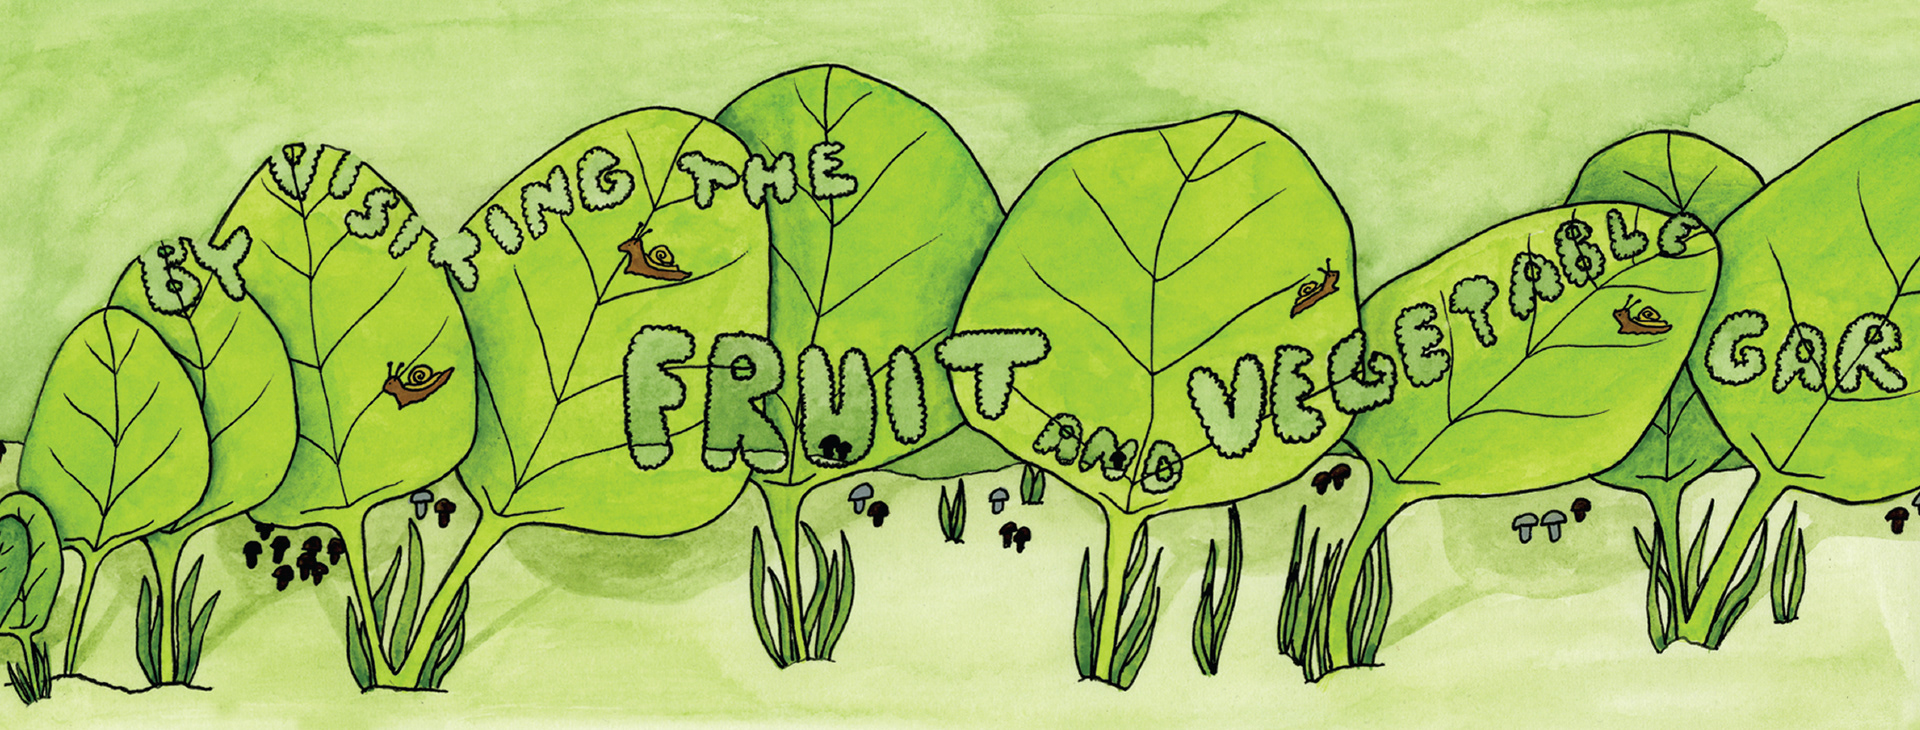 BY VISITING THE
FRUIT AND VEGETABLE GAR